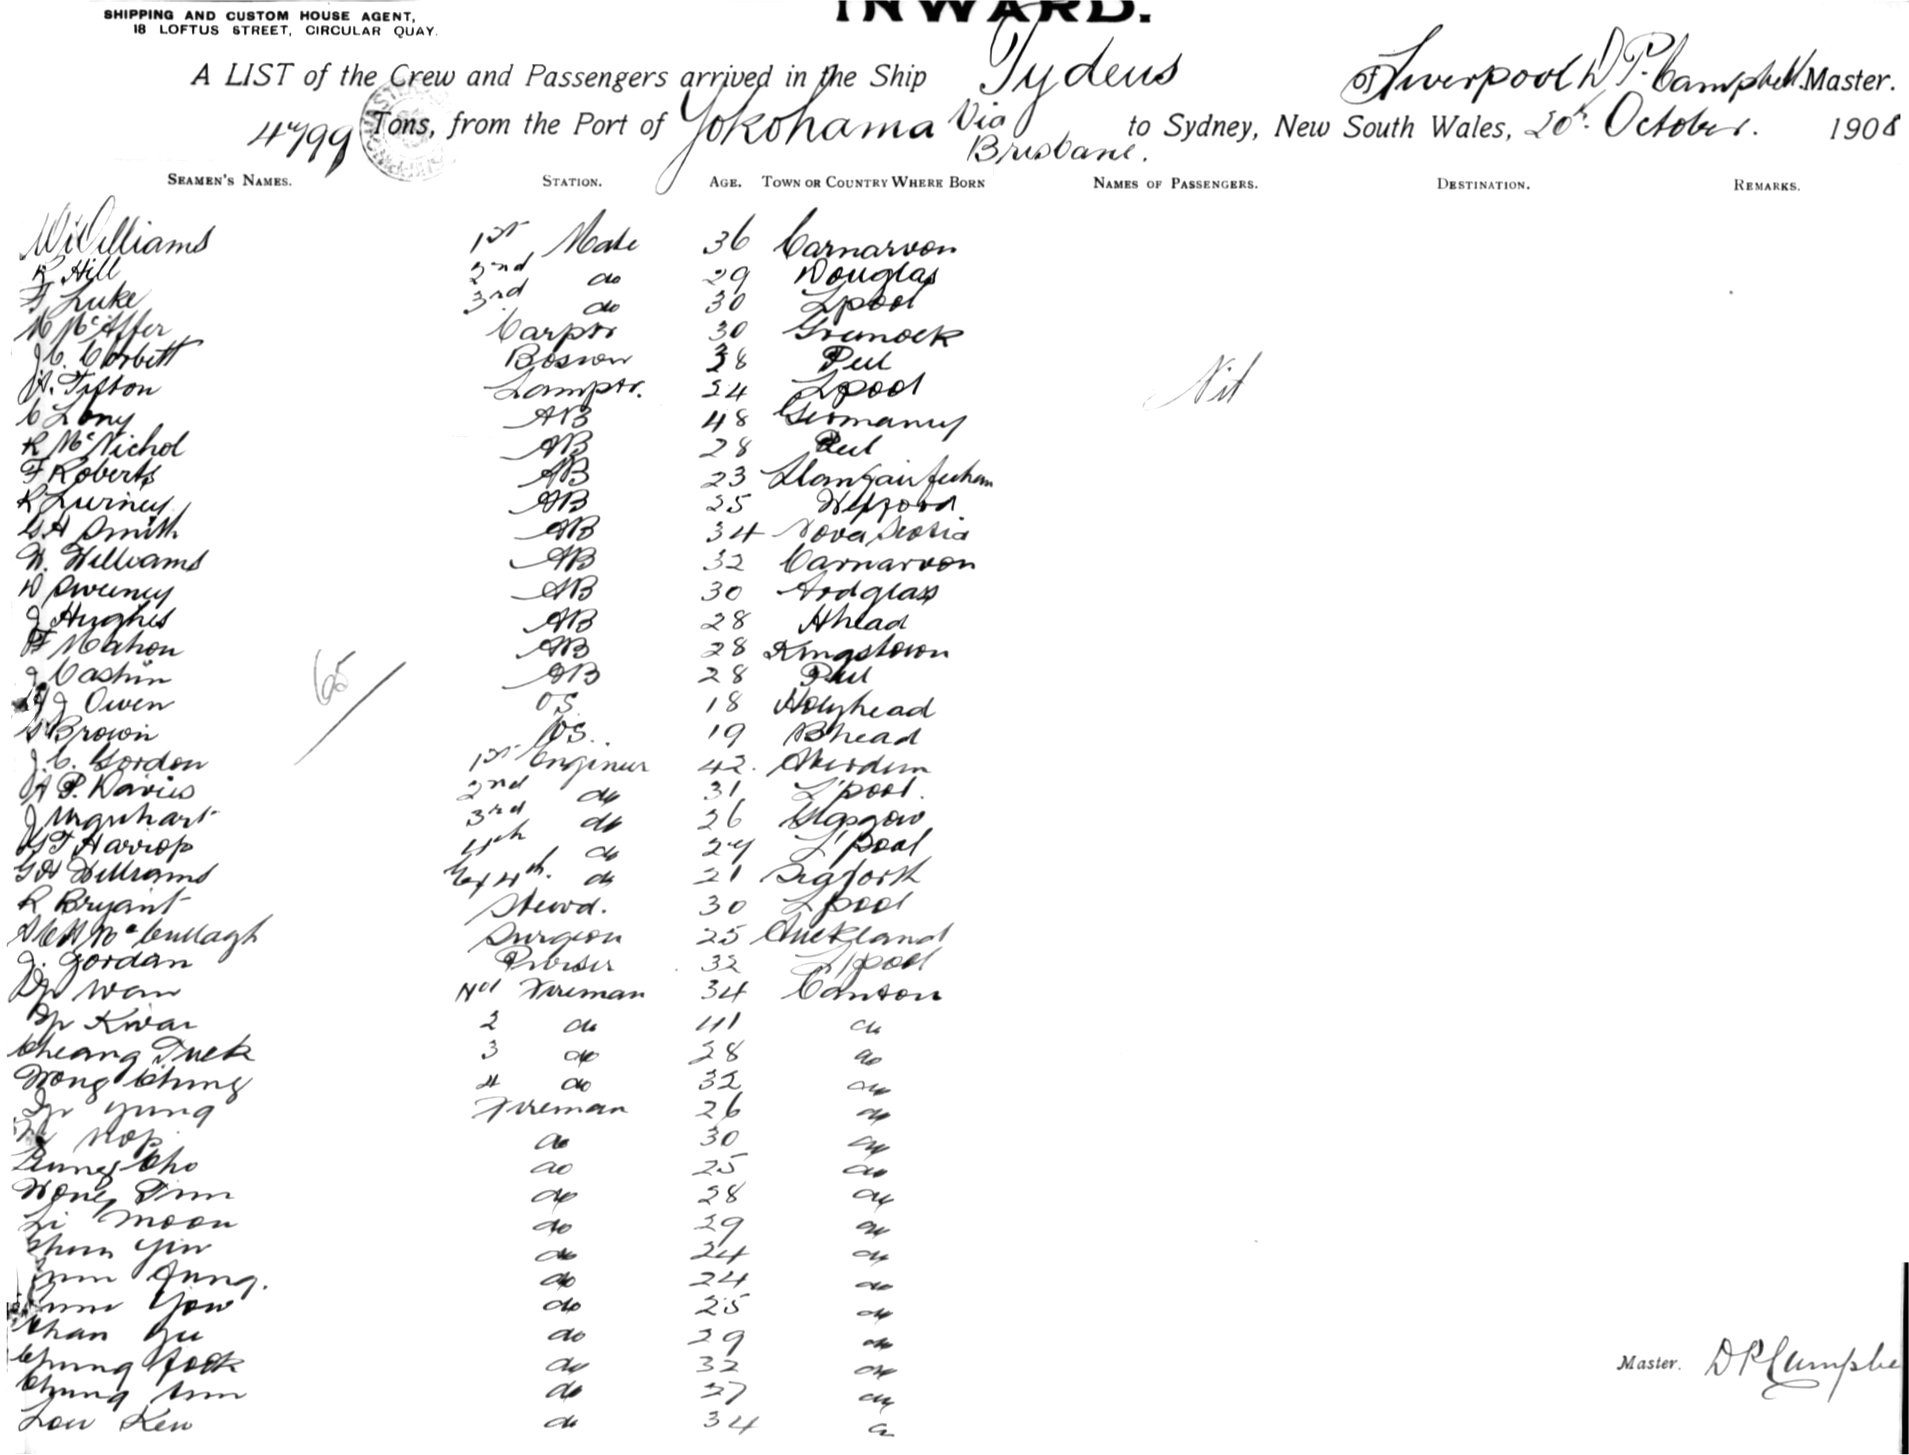 SHIPPING AND CUSTOM HOUSE AGENT,
18 LOFTUS STREET, CIRCULAR QUAY.
INWARD.
A LIST of the Crew and Passengers arrived in the Ship Tydeus of Liverpool D P. Campbell. Master.
4799 Tons, from the Port of Yokohama Via Brisbane. to Sydney, New South Wales, 20th October. 1908
SEAMEN'S NAMES. STATION. AGE. TOWN OR COUNTRY WHERE BORN NAMES OF PASSENGERS. DESTINATION. REMARKS.
Williams 1st Mate 36 Carnarvon
R Hill 2nd do 29 Douglas
F Luke 3rd do 30 Lpool
McAffer Carptr 30 Greenock
J C. Corbett Boswn 38 Peel
Nil
H. Tipton Lamptr. 24 Lpool
C Lony AB 48 Germany
R McNichol AB 28 Peel
F Roberts AB 23
R Lurney AB 25 Wexford
G H Smith AB 34 Nova Scotia
W. Williams AB 32 Carnarvon
D Sweeney AB 30 Ardglass
J Hughes AB 28 Hhead
F Mahon AB 28 Kingstown
J Cashin AB 28 Peel
65
J Owen OS 18 Holyhead
Brown OS. 19 Bhead
J. C. Gordon 1st Engineer 42. Aberdeen
H P. Davies 2nd do 31 L'pool.
J Urquhart 3rd do 26 Glasgow
Harrop 4th do 27 L'Pool
G H Williams 4th. do 21 Seaforth
R Bryant Stewd. 30 Lpool
McCullagh Surgeon 25 Auckland
J. Jordan Purser 32 L'pool
Ip Wan No1 Fireman 34 Canton
Ip Kwai 2 do 41 do
Cheang Tuck 3 do 28 do
Wong Ching 4 do 32 do
Ip Yung Fireman 26 do
Hop do 30 do
Leung Cho do 25 do
Wong do 28 do
Li Moon do 29 do
Chun Yin do 24 do
Fung. do 24 do
Yow do 25 do
Chan Yu do 29 do
Chung Fook do 32 do
Master. D P Campbe
Chung do 37 do
Low Ken do 34 do